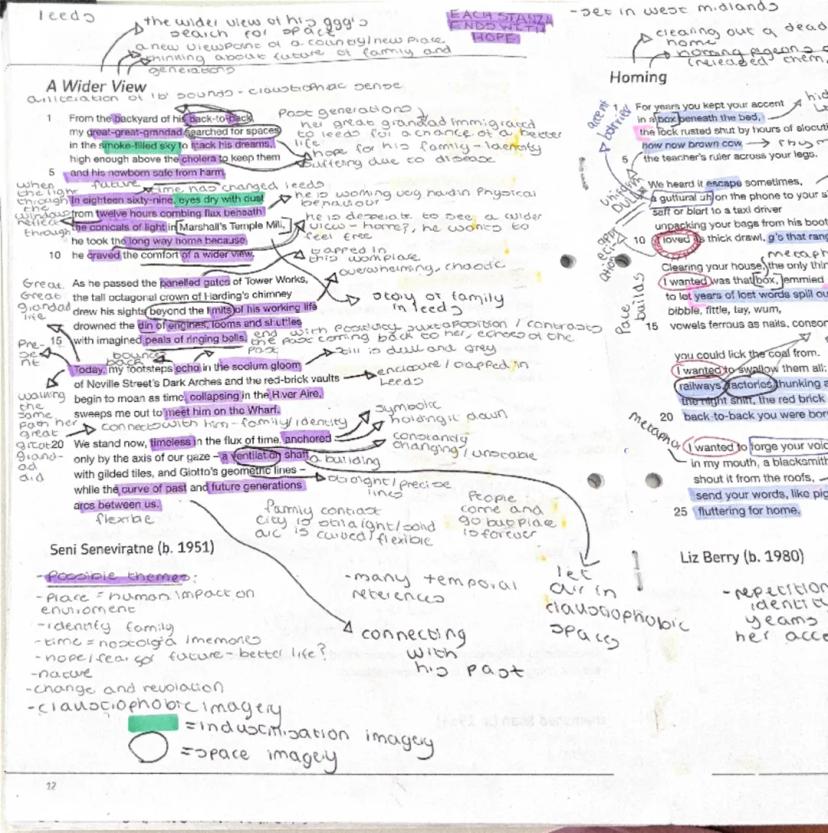 leeds
the wider view of his ggg's
search for space
a new viewpoint of a country/new place
thinking about future of family and
generations
EACH STANZA
ENDS WITH
HOPE
A Wider View
alliteration of 'b' sounds - claustrophic sense
1 From the backyard of his back-to-back,
my great-great-grandad searched for spaces
in the smoke-filled sky to stack his dreams,
high enough above the cholera to keep them
5 and his newborn safe from harm.
Past generations
her great grandad immigrated
to leeds for a chance of a better
life
hope for his family - identity
suffering due to disease
future
time has changed leeds
when
the light
through
the
window
through
In eighteen sixty-nine, eyes dry with dust
from twelve hours combing flax beneath
the conicals of light in Marshall's Temple Mill,
he took the long way home because
10 he craved the comfort of a wider view.
he is working very hard in Physical
behaviour
he is desperate to see a wider
view - home?, he wants to
feel free
trapped in
this workplace
overwheming, chaotic
As he passed the panelled gates of Tower Works,
the tall octagonal crown of Harding's chimney
drew his sights beyond the limits of his working life
drowned the din of engines, looms and shuttles
15 with imagined peals of ringing bells.
Great
Great
grandad
life
story of family
in leeds
end with positivity juxtaposition / contrasts
the past coming back to her, echoes of the
past
bounce
back
Pre-
se
nt
still is dull and grey
Today, my footsteps echo in the sodium gloom
of Neville Street's Dark Arches and the red-brick vaults
begin to moan as time, collapsing in the River Aire,
sweeps me out to meet him on the Wharf.
enclosure / trapped in
Leeds
walking
the
same
path her
great
great
grand-
ad
did
connects with him - family/identity
symbolic
holding it down
constantly
changing / unstable
20 We stand now, timeless in the flux of time, anchored
only by the axis of our gaze – a ventilation shaft
with gilded tiles, and Giotto's geometric lines –
while the curve of past and future generations
arcs between us.
a building
straight/precise
lines
flexible
family contrast
city is straight/solid
arc is curved/flexible
People
come and
go but place
is forever
Seni Seneviratne (b. 1951)
-Possible themes:
-place = human impact on
enviroment
-identity family
-time = nostalgia /memories
-hope/fear for future - better life?
-nature
-change and revolation
-claustrophobic imagery
= industrilisation imagery
= space imagery
-many temporal
references
connecting
with
his past
let
air in
claustrophobic
spaces
12
-set in west midlands
clearing out a dead
home
homing pigeons
(released them,
Homing
1 For years you kept your accent
in a box beneath the bed,
the lock rusted shut by hours of elocut
how now brown cow
5 the teacher's ruler across your legs.
accent
barrier
We heard it escape sometimes,
a guttural uh on the phone to your s
saft or blart to a taxi driver
unpacking your bags from his boot
10 I loved its thick drawl, g's that rang
metaph
Clearing your house, the only thin
I wanted was that box, jemmied
to let years of lost words spill ou
bibble, fittle, tay, wum,
15 vowels ferrous as nails, conson
Pace
builds
you could lick the coal from.
I wanted to swallow them all:
railways, factories thunking a
the night shift, the red brick
20 back-to-back you were born
metapho
I wanted to forge your voic
in my mouth, a blacksmith
shout it from the roofs,
send your words, like pig
25 fluttering for home.
Liz Berry (b. 1980)
-repetition
identity
yearns
her acce